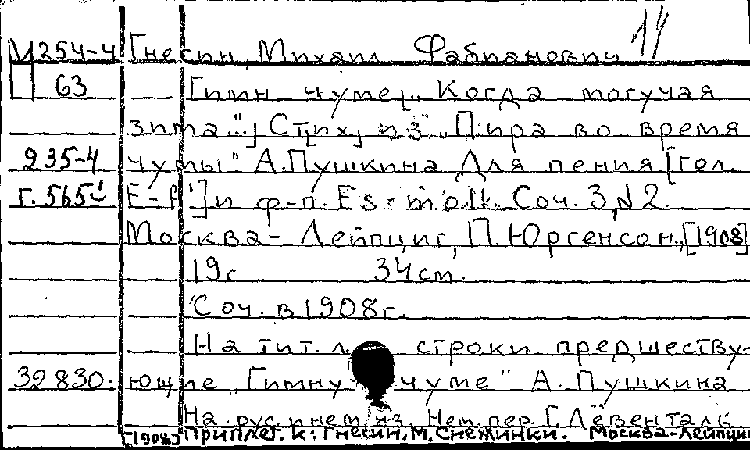 М 254-4 Гнесин, Михаил Фабианович 14
П 63 Гимн чуме[„Когда могучая
зима"] Стих, из „Пира во время
235-4 чумы" А. Пушкина Для пения [гол.
Г. 565 E-f']и ф-п. Es-moll. Соч. 3, №2.
Москва-Лейпциг, П. Юргенсон, [1908]
19с 34см.
Соч. в 1908г.
На тит. л. строки предшеству-
39830. ющие „Гимну чуме" А. Пушкина
На рус. и нем. яз. Нем. пер. Г. Лёвенталь
[1908] Приплет. к: Гнесин, М. Снежинки. Москва-Лейпциг